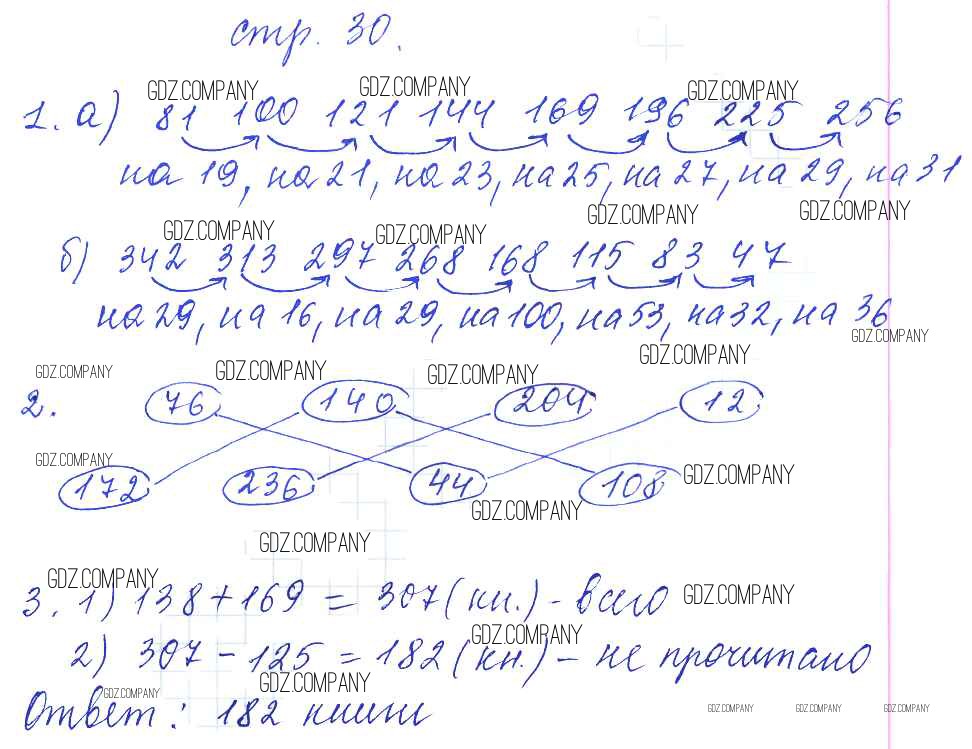 стр. 30.
GDZ.COMPANY GDZ.COMPANY GDZ.COMPANY
1. а) 81 100 121 144 169 196 225 256
на 19, на 21, на 23, на 25, на 27, на 29, на 31
GDZ.COMPANY GDZ.COMPANY GDZ.COMPANY GDZ.COMPANY
б) 342 313 297 268 168 115 83 47
на 29, на 16, на 29, на 100, на 53, на 32, на 36
GDZ.COMPANY
GDZ.COMPANY GDZ.COMPANY GDZ.COMPANY GDZ.COMPANY
2. 76 140 204 12
GDZ.COMPANY GDZ.COMPANY
172 236 44 108
GDZ.COMPANY
GDZ.COMPANY
GDZ.COMPANY GDZ.COMPANY
3. 1) 138 + 169 = 307 (кн.) - всего
GDZ.COMPANY
2) 307 - 125 = 182 (кн.) - не прочитано
GDZ.COMPANY GDZ.COMPANY
Ответ: 182 книги
GDZ.COMPANY GDZ.COMPANY GDZ.COMPANY